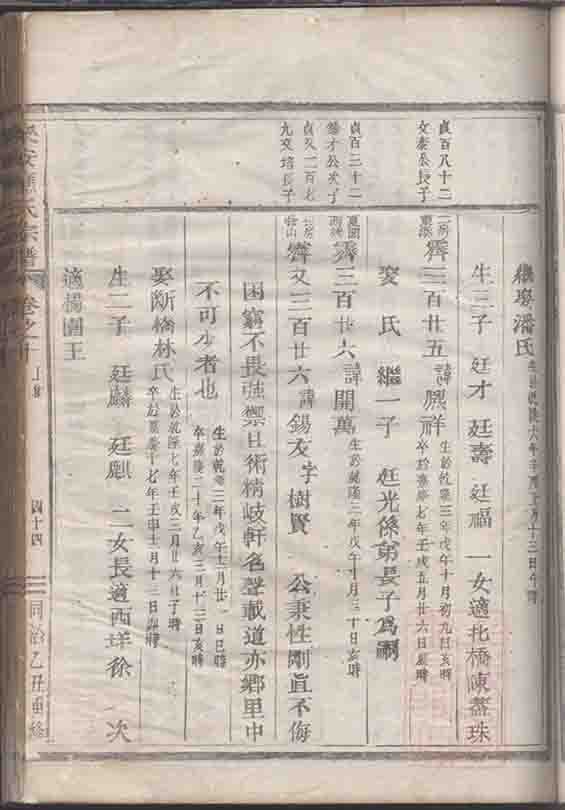 貞百八十二
文泰公長子
貞百三十二
貞又一百七
九文培長子
繼娶潘氏
生三子 廷才 廷壽 廷福 一女適北橋陳藎珠
霽三百廿五諱興祥 生於乾隆三年戊午十月初九日亥時
卒於嘉慶七年壬戌五月廿六日
娶 氏 繼一子 廷光係弟長子為嗣
霽三百廿六諱開萬 生於乾隆三年戊午十月三十日亥時
霽又三百廿六諱錫友字樹賢 公秉性剛直不侮
困窮不畏強禦且術精岐軒名聲載道亦鄉里中
不可少者也 生於乾隆三年戊午十二月廿一日巳時
卒嘉慶二十年乙亥三月十三日亥時
娶斷橋林氏 生於乾隆七年壬戌三月廿六日子時
卒於嘉慶十七年壬申十一月十三日卯時
生二子 廷麟 廷麒 二女長適西垟徐 次
適楊園王
氏宗譜 卷之
四十四
同治乙丑重修